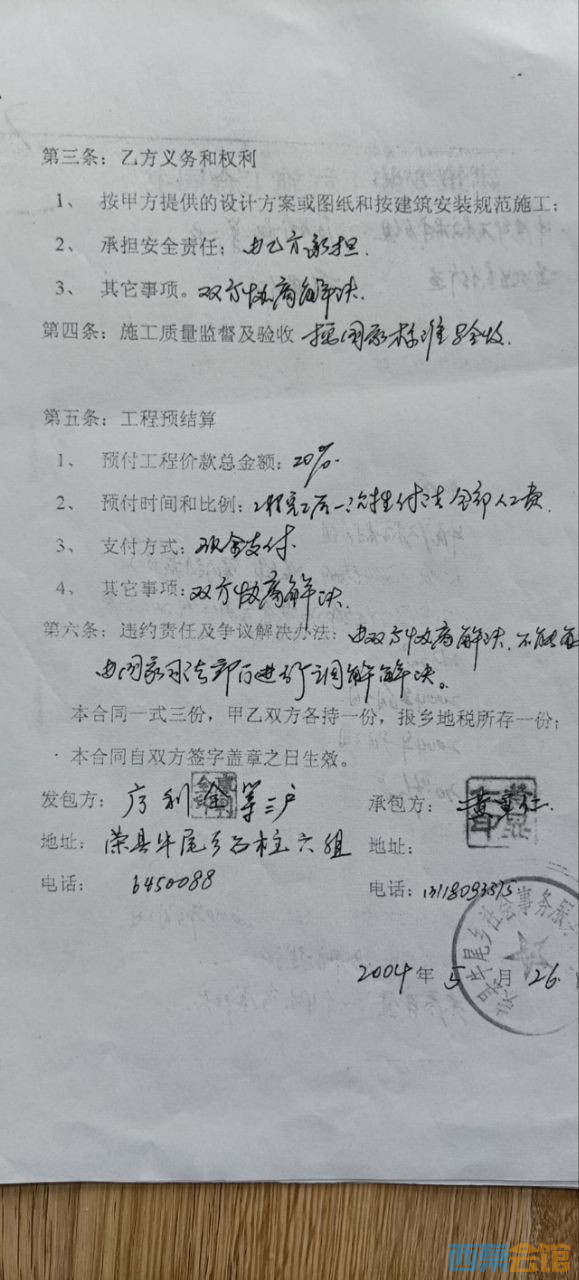 第三条：乙方义务和权利
1、 按甲方提供的设计方案或图纸和按建筑安装规范施工；
2、 承担安全责任；由乙方承担.
3、 其它事项。双方协商解决.
第四条：施工质量监督及验收 按国家标准验收.
第五条：工程预结算
1、 预付工程价款总金额：20%.
2、 预付时间和比例：工程完工后一次性付清全部人工费.
3、 支付方式：现金支付.
4、 其它事项：双方协商解决.
第六条：违约责任及争议解决办法：由双方协商解决.不能
由国家司法部门进行调解解决。
本合同一式三份，甲乙双方各持一份，报乡地税所存一份；
本合同自双方签字盖章之日生效。
发包方： 利金等三户 承包方：黄
地址： 荣县牛尾乡石柱六组 地址：
电话： 6450088 电话：
牛尾乡社会事务服
2004年5月26
西泵会馆